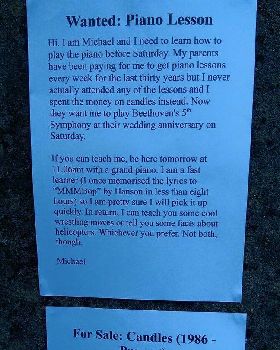 Wanted: Piano Lesson
Hi. I am Michael and I need to learn how to
play the piano before Saturday. My parents
have been paying for me to get piano lessons
every week for the last thirty years but I never
actually attended any of the lessons and I
spent the money on candles instead. Now
they want me to play Beethoven's 5th
Symphony at their wedding anniversary on
Saturday.
If you can teach me, be here tomorrow at
with a grand piano. I am a fast
learner (I once memorised the lyrics to
"MMMbop" by Hanson in less than eight
hours) so I am pretty sure I will pick it up
quickly. In return, I can teach you some cool
wrestling moves or tell you some facts about
helicopters. Whichever you prefer. Not both,
though.
Michael
For Sale: Candles (1986 -